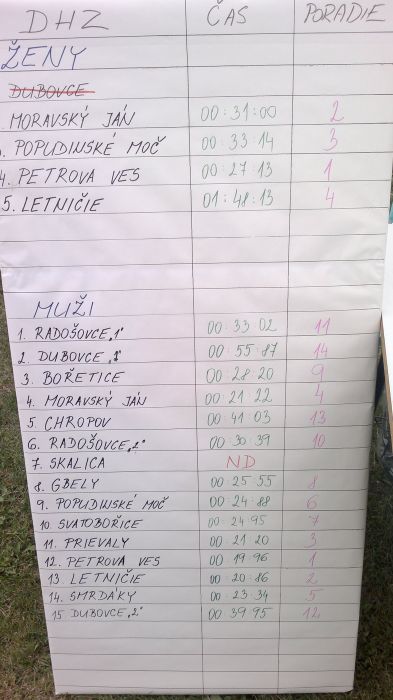 DHZ ČAS PORADIE
ŽENY
DUBOVCE
MORAVSKÝ JÁN 00:31:00 2
POPUDINSKÉ MOČ 00:33:14 3
4. PETROVA VES 00:27:13 1
5. LETNIČIE 01:48:13 4
MUŽI
1. RADOŠOVCE „1" 00:33 02 11
2. DUBOVCE 00:55:87 14
3. BOŘETICE 00:28:20 9
4. MORAVSKÝ JÁN 00:21 22 4
5. CHROPOV 00:41 03 13
6. RADOŠOVCE „2" 00:30:39 10
7. SKALICA ND
8. GBELY 00 25:55 8
9. POPUDINSKÉ MOČ 00:24:88 6
10. SVATOBOŘICE 00:24 95 7
11. PRIEVALY 00:21 20 3
12. PETROVA VES 00 19:96 1
13 LETNIČIE 00:20:86 2
14. SMRDÁKY 00:23 34 5
15 DUBOVCE „2" 00:39 95 12